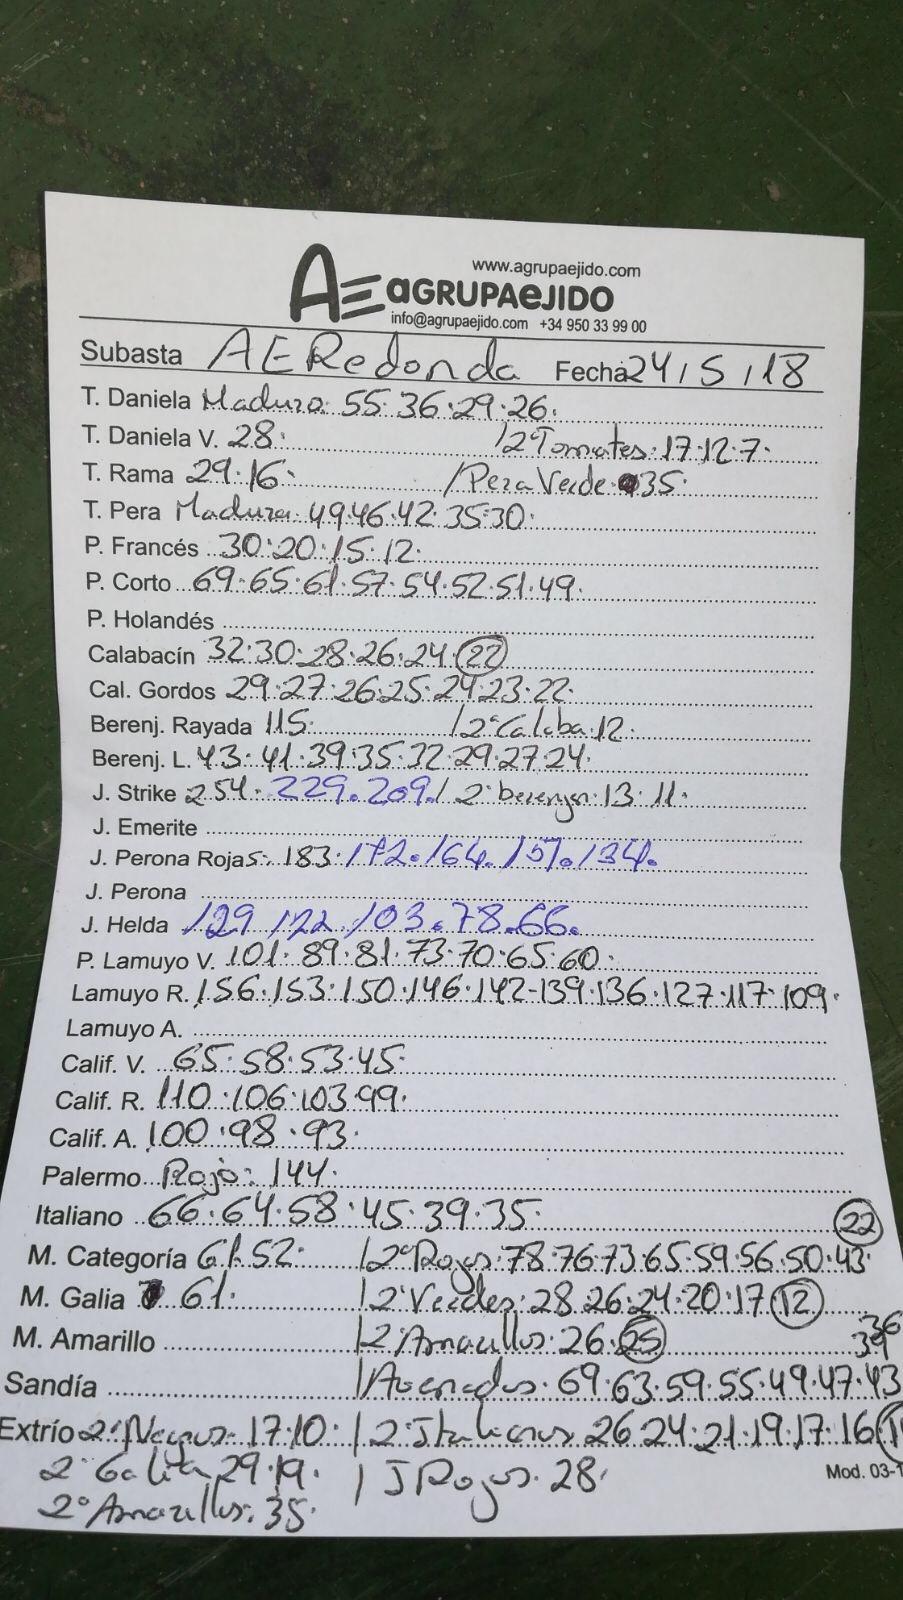 www.agrupaejido.com
AE aGRUPAeJIDO
info@agrupaejido.com +34 950 33 99 00
Subasta AERedonda Fecha 24/5/18
T. Daniela Maduro 55·36·29·26·
T. Daniela V. 28· /2ºTomates·17·12·7·
T. Rama 29·16· /Pera Verde·35·
T. Pera Madura 49·46·42·35·30·
P. Francés 30·20·15·12·
P. Corto 69·65·61·57·54·52·51·49·
P. Holandés
Calabacín 32·30·28·26·24·22
Cal. Gordos 29·27·26·25·24·23·22·
Berenj. Rayada 115· /2ºCalaba·12·
Berenj. L. 43·41·39·35·32·29·27·24·
J. Strike 254·229·209·/2ºberenjen·13·11·
J. Emerite
J. Perona Rojas·183·172·164·157·134·
J. Perona
J. Helda 129 122 103·78·66·
P. Lamuyo V. 101·89·81·73·70·65·60·
Lamuyo R. 156·153·150·146·142-139·136·127·117·109·
Lamuyo A.
Calif. V. 65·58·53·45·
Calif. R. 110·106·103·99·
Calif. A. 100·98·93·
Palermo Rojo: 144·
Italiano 66·64·58·45·39·35· 22
M. Categoría 61·52· /2ºRojos·78·76·73·65·59·56·50·43·
M. Galia 61· /2ºVerdes·28·26·24·20·17·12
M. Amarillo /2ºAmarillos·26·25 39 36
Sandía /Asurcados·69·63·59·55·49·47·43
Extrío 2ºNegros·17·10· /2ºItalianos 26·24·21·19·17·16
2ºGalia 29·19· /J Rojos·28· Mod. 03-1
2ºAmarillos·35·